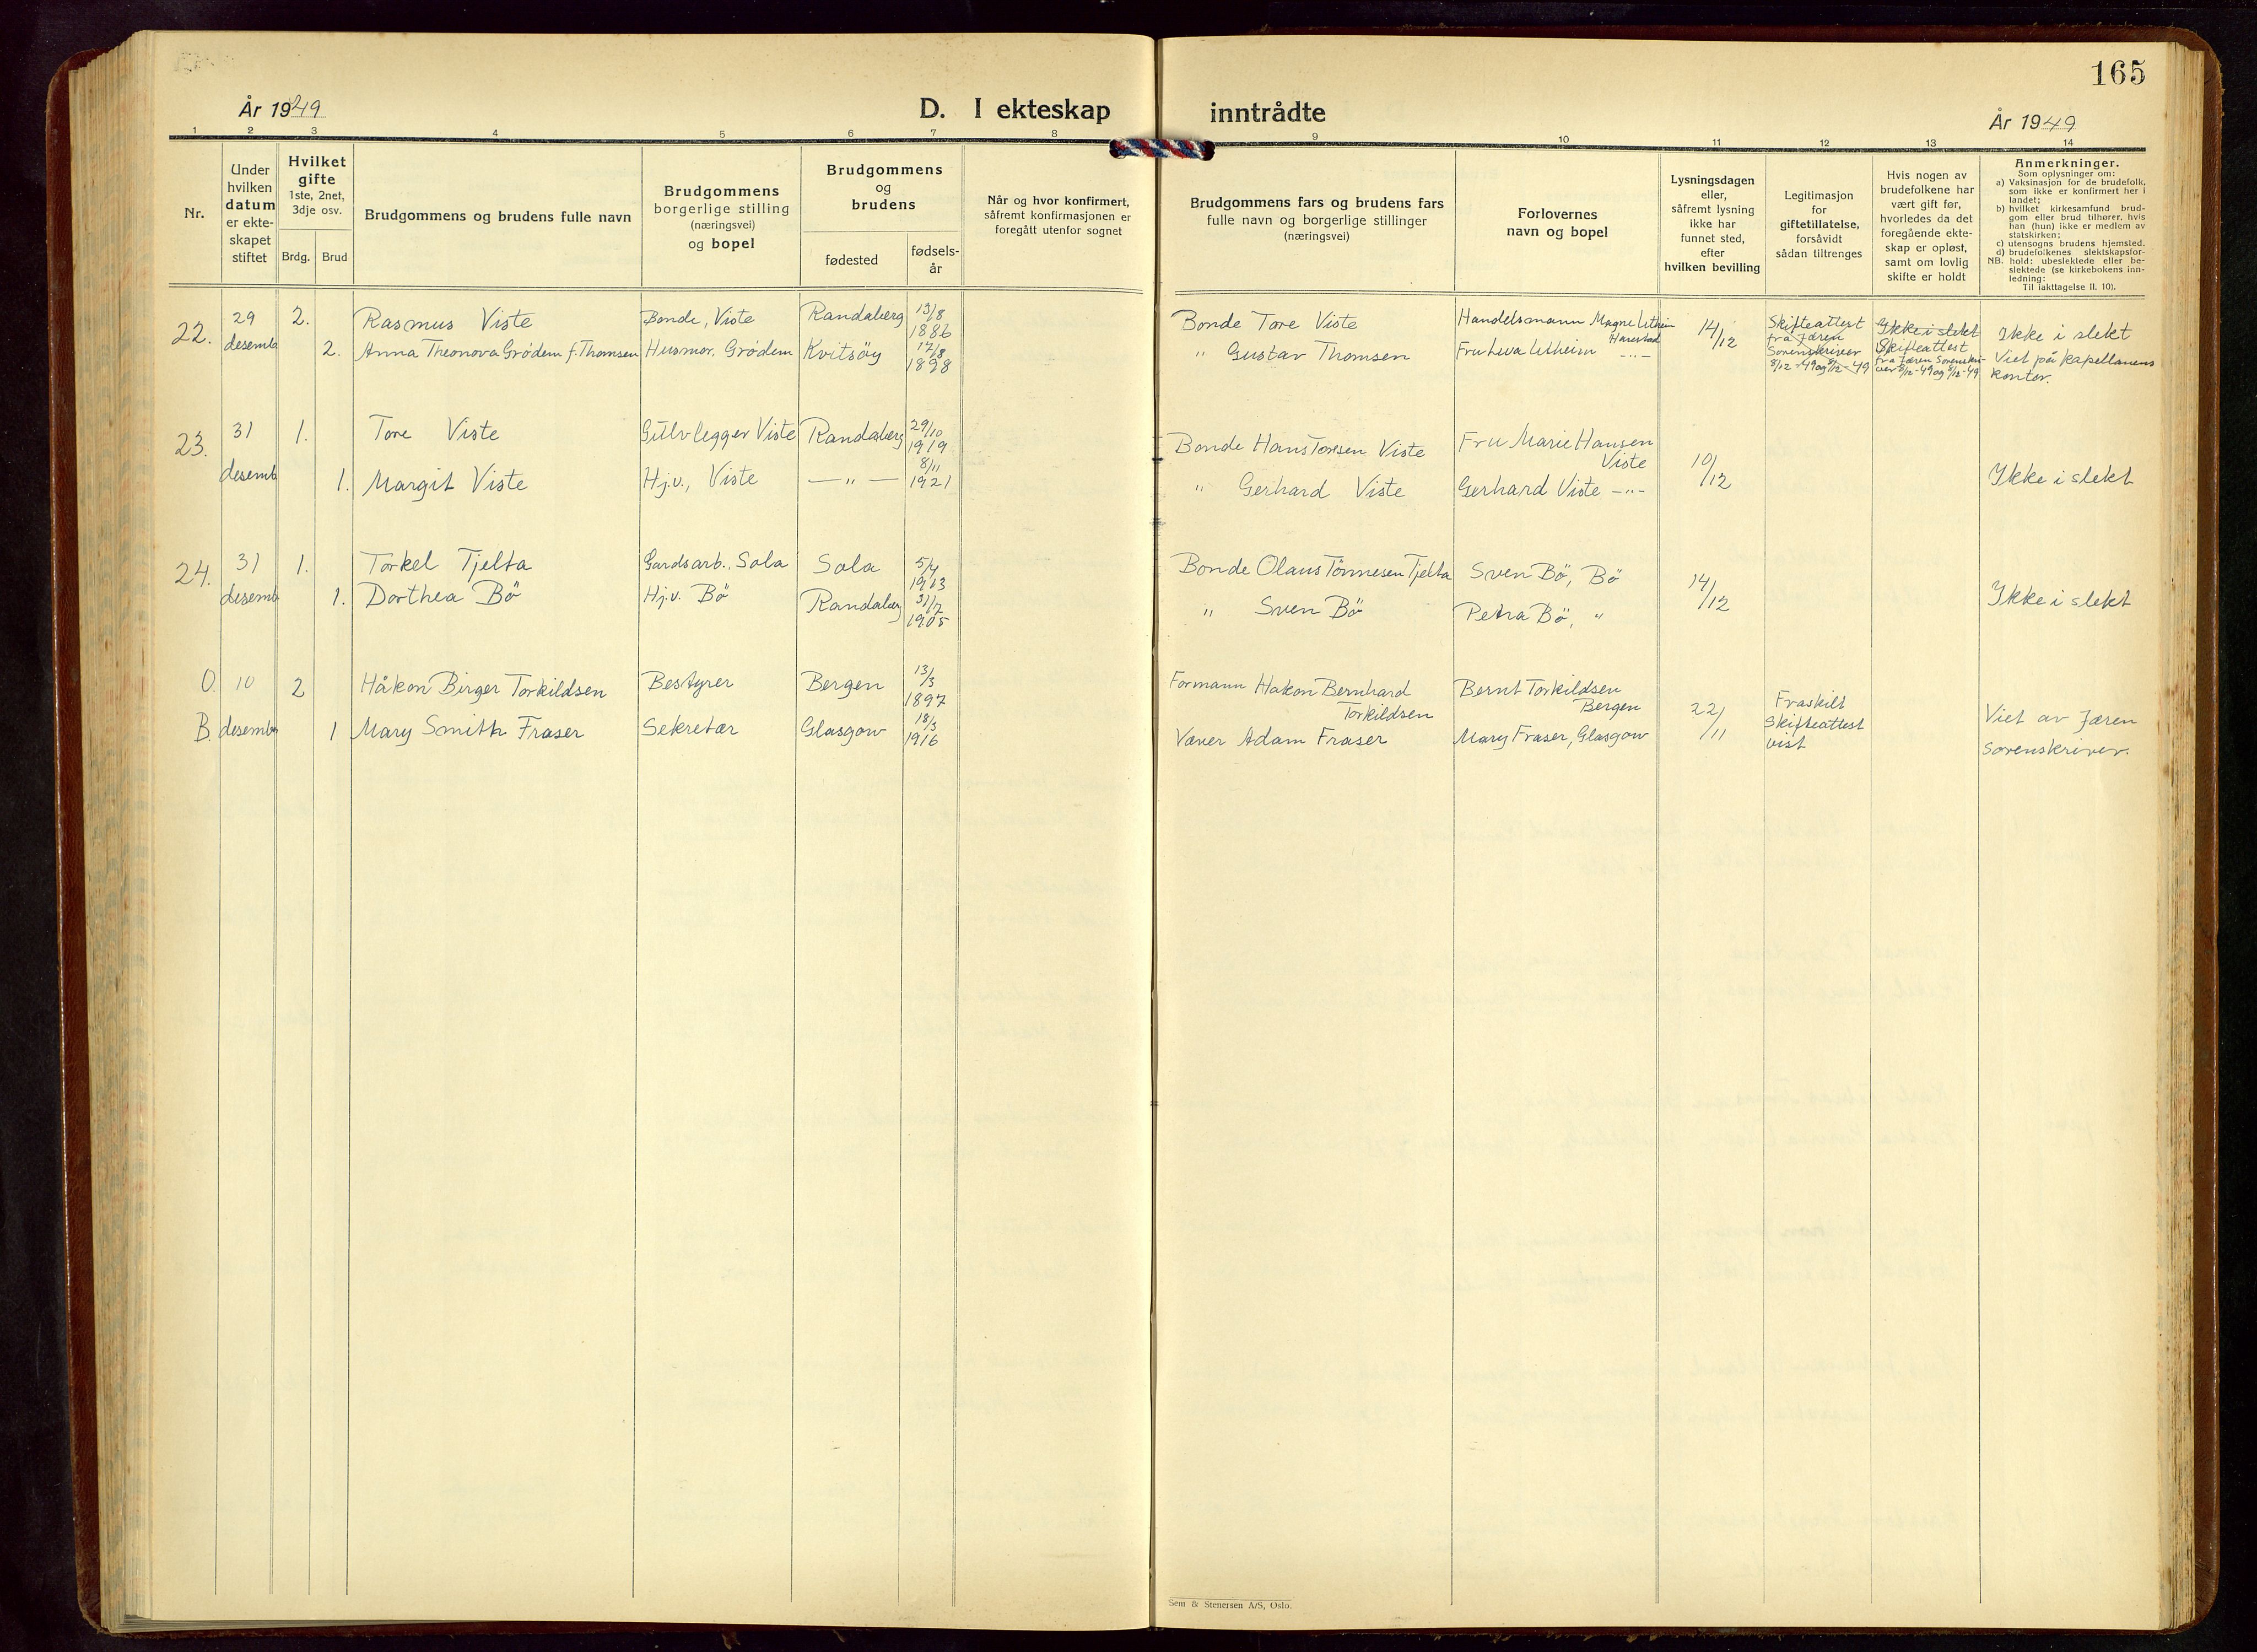 165
År 1949
D. I ekteskap inntrådte
År 1949
1 2 3 4 5 6 7 8 9 10 11 12 13 14
Nr.
Under
hvilken
datum
er ekte-
skapet
stiftet
Hvilket
gifte
1ste, 2net,
3dje osv.
Brdg. Brud
Brudgommens og brudens fulle navn
Brudgommens
borgerlige stilling
(næringsvei)
og bopel
Brudgommens
og
brudens
fødested
fødsels-
år
Når og hvor konfirmert,
såfremt konfirmasjonen er
foregått utenfor sognet
Brudgommens fars og brudens fars
fulle navn og borgerlige stillinger
(næringsvei)
Forlovernes
navn og bopel
Lysningsdagen
eller,
såfremt lysning
ikke har
funnet sted,
efter
hvilken bevilling
Legitimasjon
for
giftetillatelse,
forsåvidt
sådan tiltrenges
Hvis nogen av
brudefolkene har
vært gift før,
hvorledes da det
foregående ekte-
skap er opløst,
samt om lovlig
skifte er holdt
Anmerkninger.
Som oplysninger om:
a) Vaksinasjon for de brudefolk,
som ikke er konfirmert her i
landet;
b) hvilket kirkesamfund brud-
gom eller brud tilhører, hvis
han (hun) ikke er medlem av
statskirken;
c) utensogns brudens hjemsted.
d) brudefolkenes slektskapsfor-
NB. hold: ubeslektede eller be-
slektede (se kirkebokens inn-
ledning:
Til iakttagelse II. 10).
22. 29 desemb 2. Rasmus Viste Bonde, Viste Randaberg 13/8 1886
2. Anna Theonova Grödem f. Thomsen Husmor, Grödem Kvitsöy 17/8 1898
Bonde Tore Viste Handelsmann Magne Utheim Harestad 14/12
" Gustav Thomsen Fru Liva Utheim -"-
Skifteattest
fra Jæren
Sorenskriver
8/12 - 49 og 8/12 - 49
Ikke i slekt
Skifteattest
fra Jæren Sorenskri-
ver 8/12-49 og 8/12-49
Ikke i slekt
Viet på kapellanens
kontor.
23. 31 desemb 1. Tore Viste Gulvlegger Viste Randaberg 29/10 1919
1. Margit Viste Hj.v., Viste — " — 8/11 1921
Bonde Hans Toresen Viste Fru Marie Hansen
Viste 10/12
" Gerhard Viste Gerhard Viste -"- Ikke i slekt
24. 31 desemb 1. Torkel Tjelta Gardsarb., Sola Sola 5/4 1913
1. Dorthea Bö Hj.v. Bö Randaberg 31/7 1905
Bonde Olaus Tönnesen Tjelta Sven Bö, Bö 14/12
" Sven Bö Petra Bö, " Ikke i slekt
O. 10 2 Håkon Birger Torkildsen Bestyrer Bergen 13/3 1897
B. desember 1 Mary Smith Fraser Sekretær Glasgow 18/3 1916
Formann Hakon Bernhard
Torkildsen
Bernt Torkildsen
Bergen
22/11
Fraskilt
Skifteattest
vist
Væver Adam Fraser Mary Fraser, Glasgow
Viet av Jæren
sorenskriver.
Sem & Stenersen A/S, Oslo.